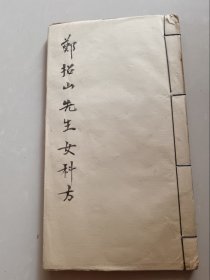 鄭招山先生女科方